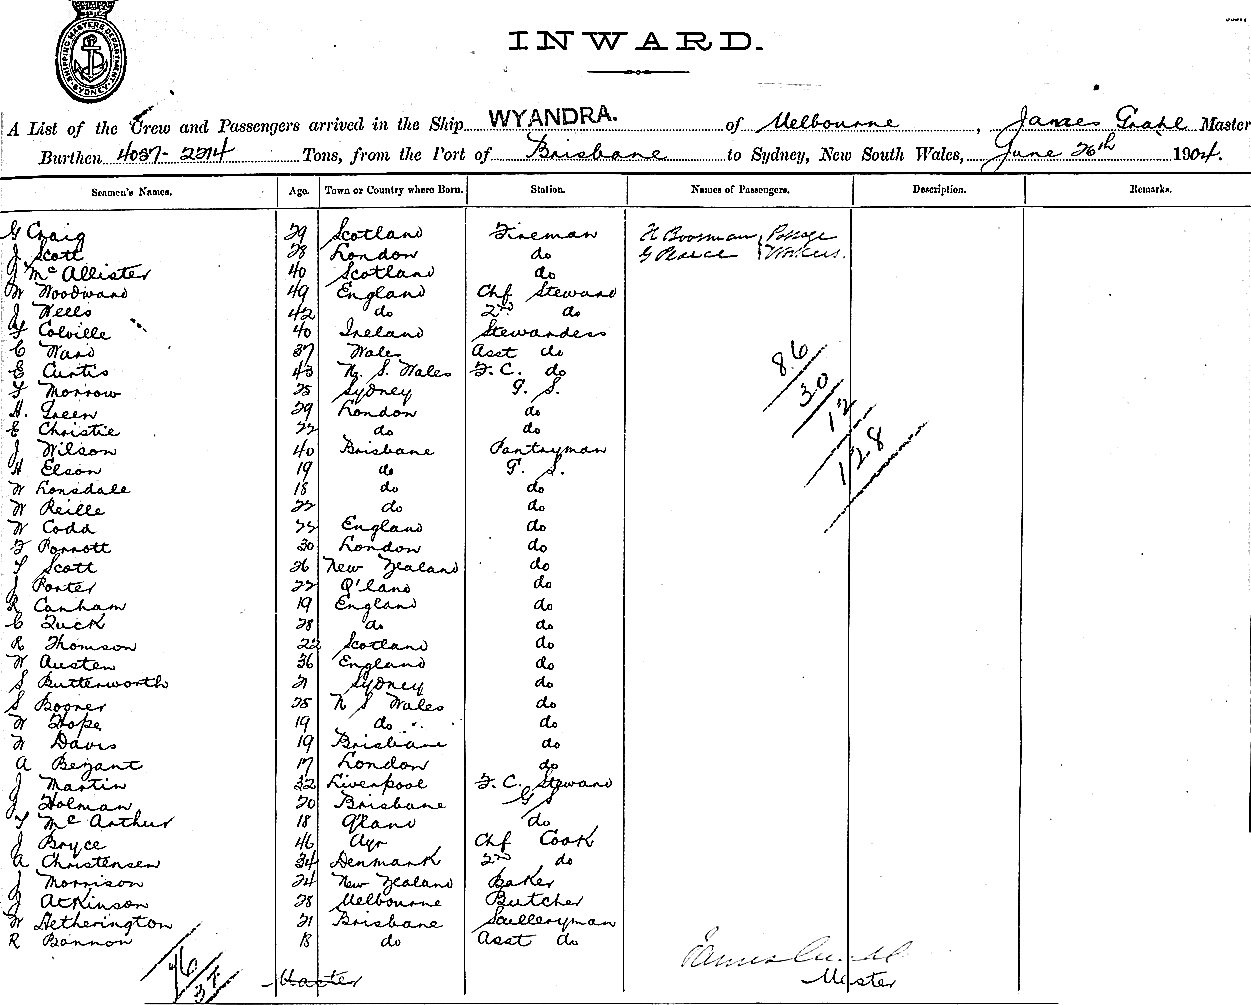 SHIPPING MASTERS DEPARTMENT SYDNEY
INWARD.
A List of the Crew and Passengers arrived in the Ship WYANDRA. of Melbourne, James Grahl Master
Burthen 4057-2514 Tons, from the Port of Brisbane to Sydney, New South Wales, June 26th 1904.
Seamen's Names. Age. Town or Country where Born. Station. Names of Passengers. Description. Remarks.
G Craig 29 Scotland Fireman H Boorman Passage
J Scott 28 London do G Pearce Workers.
J McAllister 40 Scotland do
W Woodward 49 England Chf Steward
J Wells 42 do 2nd do
F Colville 40 Ireland Stewardess
C Ward 37 Wales Asst do
E Curtis 43 N. S. Wales F.C. do
F Morrow 25 Sydney G. S.
H. Green 29 London do
E Christie 22 do do
J Wilson 40 Brisbane Pantryman
H Elson 19 do G. S.
W Lonsdale 18 do do
W Reille 22 do do
W Codd 22 England do
F Parrott 30 London do
T Scott 26 New Zealand do
J Porter 22 Q'land do
R Canham 19 England do
C Tuck 28 do do
R Thomson 22 Scotland do
W Austen 36 England do
S Butterworth 21 Sydney do
S Booner 25 N S Wales do
W Hope 19 do do
W Davis 19 Brisbane do
A Bezant 17 London do
J Martin 32 Liverpool F.C. Steward
J Holman 20 Brisbane G S
T McArthur 18 Q'land do
J Bryce 46 Ayr Chf Cook
A Christensen 34 Denmark 2nd do
J Morrison 24 New Zealand Baker
J Atkinson 28 Melbourne Butcher
W Hetherington 21 Brisbane Sculleryman
R Bannon 18 do Asst do
86
30
12
128
76
37
Master
James Grahl
Master